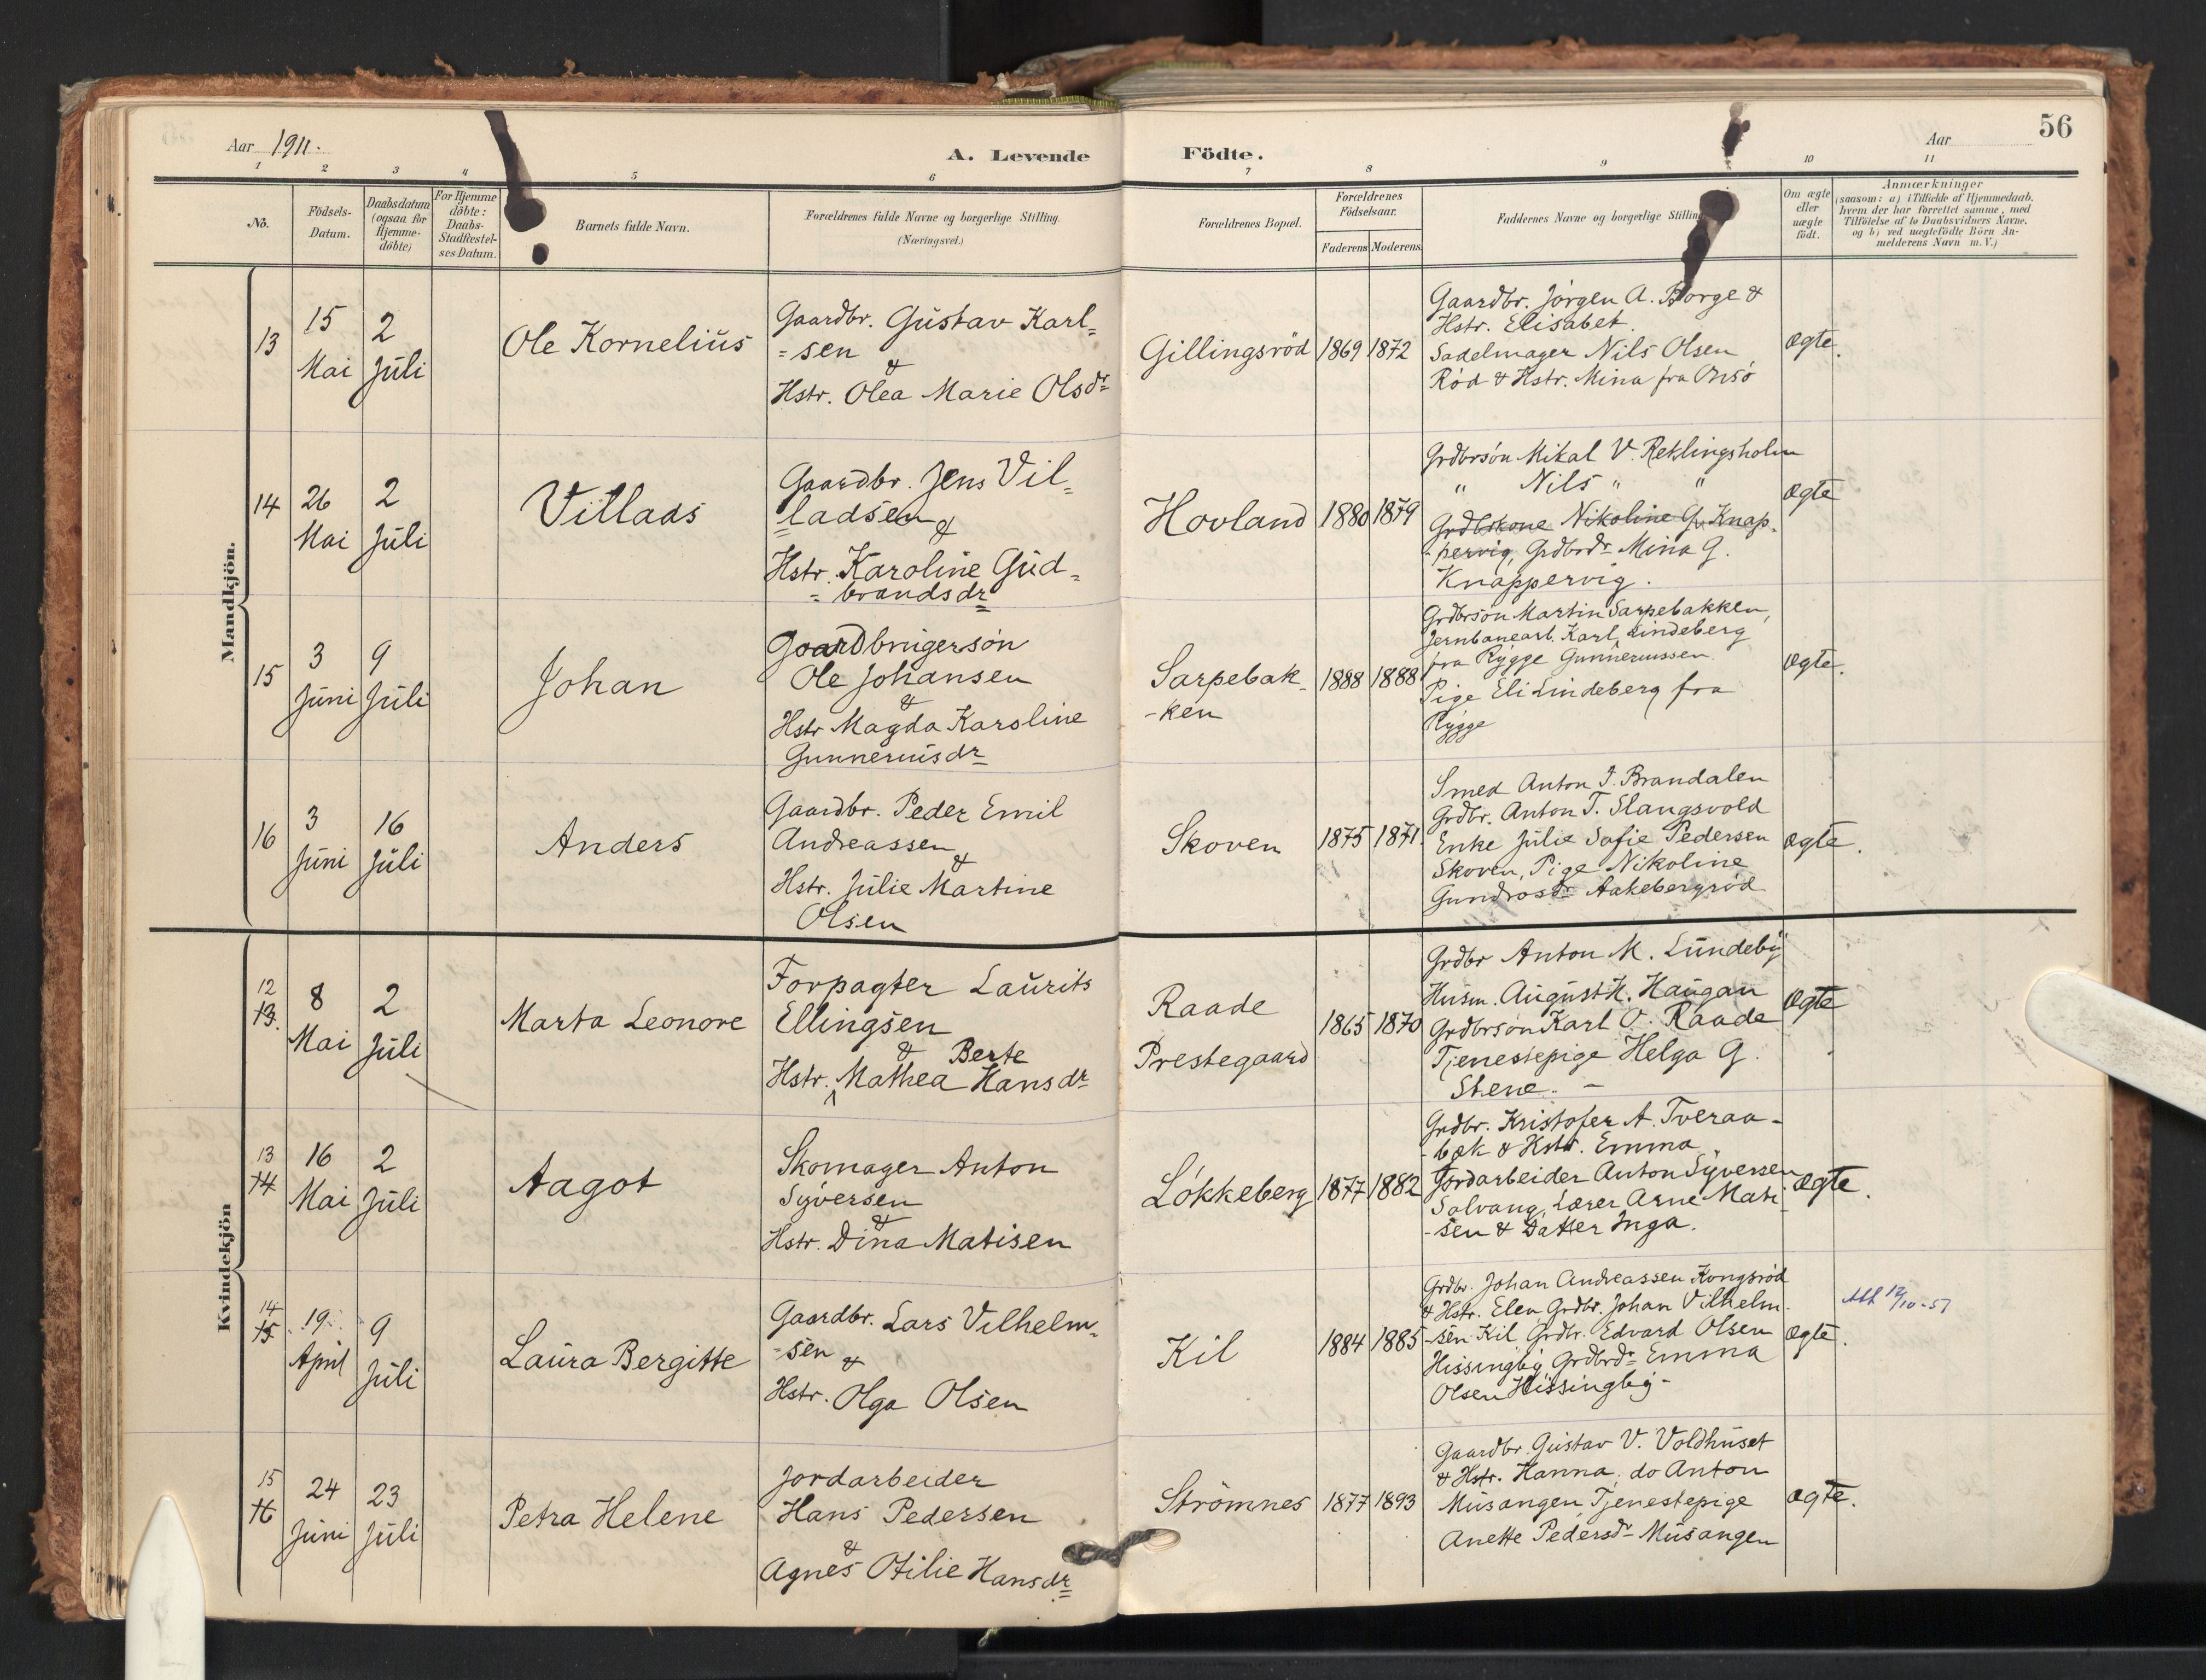 Aar 1911.
A. Levende Födte.
Aar
56
1 2 3 4 5 6 7 8 9 10 11
No.
Födsels-
Datum.
Daabsdatum
(ogsaa for
Hjemme-
döbte)
For Hjemme
döbte:
Daabs-
Stadfæstel-
ses Datum.
Barnets fulde Navn.
Forældrenes fulde Navne og borgerlige Stilling.
(Næringsvei.)
Forældrenes Bopæl.
Forældrenes
Födselsaar.
Faderens Moderens
Faddernes Navne og borgerlige Stilling
Om ægte
eller
uægte
födt.
Anmærkninger
(saasom: a) i Tilfælde af Hjemmedaab,
hvem der har forrettet samme, med
Tilföielse af to Daabsvidners Navne.
og b) ved uægtefödte Börn An-
melderens Navn m. V.)
Mandkjön.
13
15
Mai
2
Juli
Ole Kornelius
Gaardbr. Gustav Karl=
=sen
&
Hstr. Olea Marie Olsdr
Gillingsröd
1869
1872
Gaardbr. Jörgen A. Borge &
Hstr. Elisabet.
Sadelmager Nils Olsen,
Röd & Hstr. Mina fra Onsö
Ægte.
14
26
Mai
2
Juli
Villads
Gaardbr. Jens Vil=
=ladsen &
Hstr. Karoline Gud=
=brandsdr
Hovland
1880
1879
Grdbrsön Mikal V. Reklingsholm
" Nils " "
Grdbrkone Nikoline G. Knap-
-pervig, Grdbrdr Mina G.
Knappervig.
Ægte
15
3
Juni
9
Juli
Johan
Gaardbrugersön
Ole Johansen
&
Hstr Magda Karoline
Gunnerusdr
Sarpebak-
-ken
1888
1888
Grdbrsön Martin Sarpebakken,
Jernbanearb. Karl, Lindeberg
fra Rygge Gunnerussen
Pige Eli Lindeberg fra
Rygge
Ægte.
16
3
Juni
16
Juli
Anders
Gaardbr. Peder Emil
Andreassen
&
Hstr. Julie Martine
Olsen
Skoven
1875
1871.
Smed Anton J. Brandalen
Grdbr. Anton T. Slangsvold
Enke Julie Sofie Pedersen
Skoven, Pige Nikoline
Gundrosdr Aakebergröd
Ægte.
Kvindekjön
12
13.
8
Mai
2
Juli
Marta Leonore
Forpagter Laurits
Ellingsen
& Berte
Hstr. Mathea Hansdr
Raade
Prestegaard
1865
1870
Grdbr Anton M. Lundeby
Husm. August H. Haugan
Grdbrsön Karl O. Raade
Tjenestepige Helga G.
Stene. -
Ægte
13
14
16
Mai
2
Juli
Aagot
Skomager Anton
Syversen
&
Hstr. Dina Matisen
Lökkeberg
1877
1882
Grdbr. Kristofer A. Tveraa-
-bæk & Hstr. Emma
Jordarbeider Anton Syversen
Solvang, Lærer Arne Mati-
-sen & Datter Inga.
Ægte.
14
15
19.
April
9
Juli
Laura Bergitte
Gaardbr. Lars Vilhelm=
=sen &
Hstr. Olga Olsen
Kil
1884
1885
Grdbr. Johan Andreassen Kongsröd
& Hstr. Elen Grdbr. Johan Vilhelm-
-sen Kil Grdbr. Edvard Olsen
Hissingby Grdbrdr Emma
Olsen Hissingby-
Ægte.
12/10-57
15
16
24
Juni
23
Juli
Petra Helene
Jordarbeider
Hans Pedersen
&
Agnes Otilie Hansdr
Strömnes
1877
1893
Gaardbr. Gustav V. Voldhuset
& Hstr. Hanna, do Anton
Musangen Tjenestepige
Anette Pedersdr Musangen
Ægte.